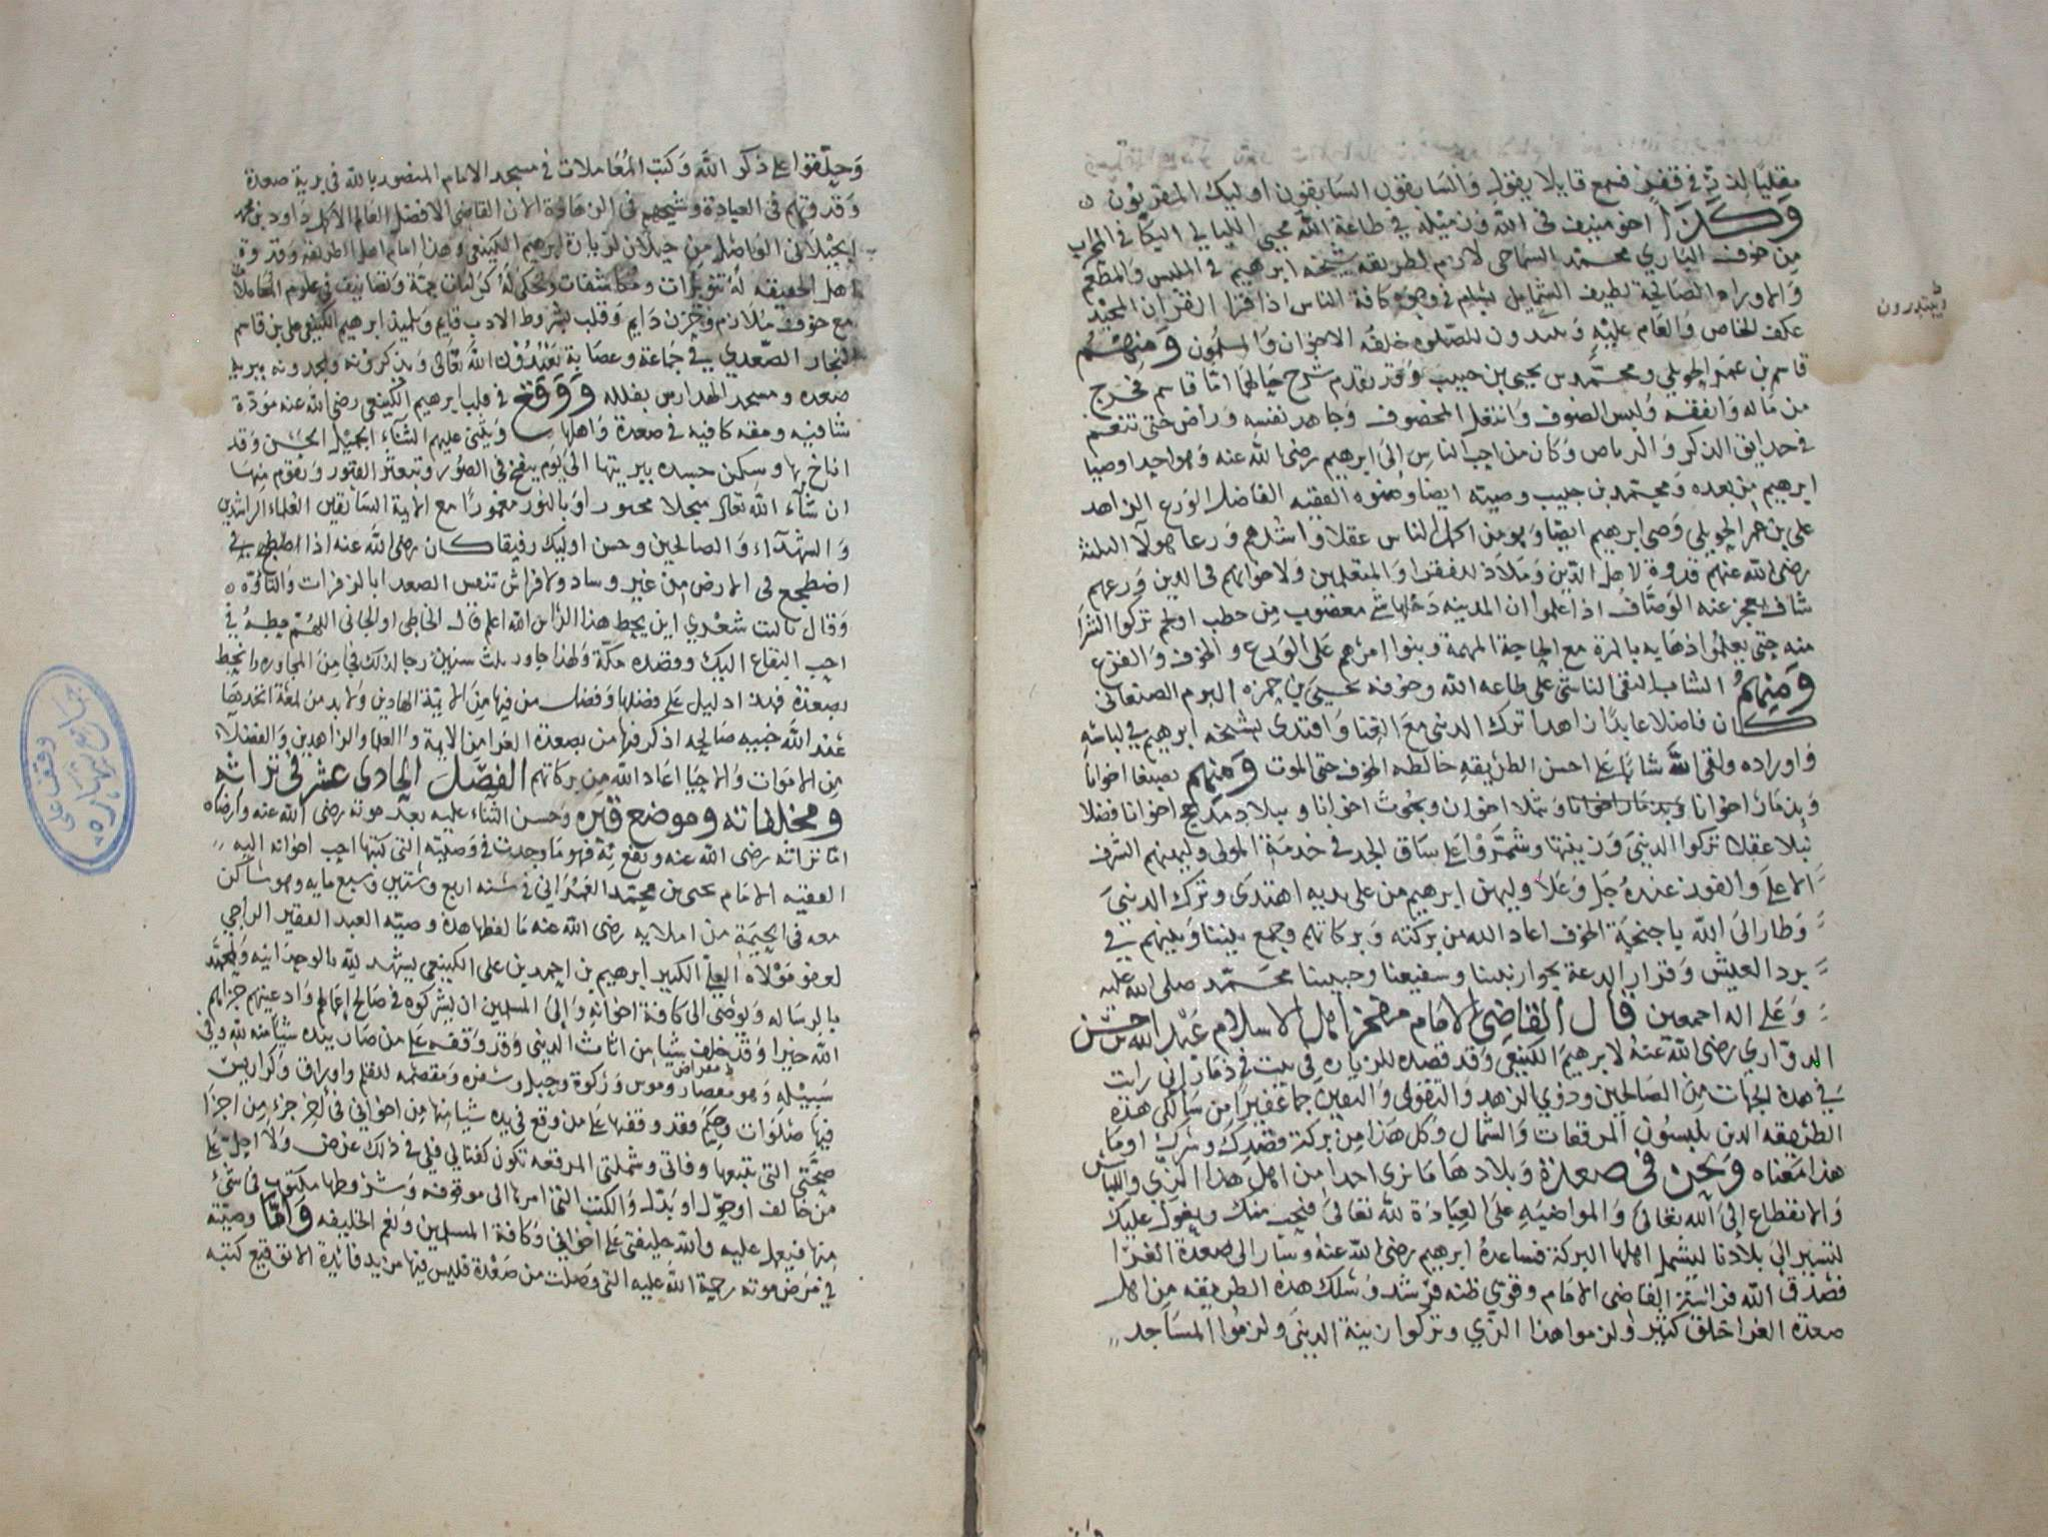 مقليا لذيذ في قفر فسمع قايلا يقول والسابقون السابقون اوليك المقربون
وكذا اخو منيف في الله ورميله في طاعة الله محيي الليالي البكا في المحراب
من خوف الباري محمد السماحي لازم لطريقه شيخه ابرهيم في الملبس والمطعم
والاوراد الصالحة لطيف الشمايل يسلم في وجوه كافة الناس اذا قرا القران المجيد
عكف الخاص والعام عليه ويبتدرون للصلوه خلفه الاخوان والمسلمون ومنهم
ويبتدرون
قاسم بن عمر الحويلي ومحمد بن يحيى بن حبيب وقد تقدم شرح حالهما اما قاسم فخرج
من ماله وانفقه ولبس الصوف وانتعل المخصوف وجاهد نفسه وراض حتى تنعم
في حدايق الذكر والرياض وكان من احب الناس الى ابرهيم رضى الله عنه وهو احد اوصيا
ابرهيم من بعده ومحمد بن حبيب وصيته ايضا وصنوه الفقيه الفاضل الورع الزاهد
علي بن عمر الحويلي وصى ابرهيم ايضا وهو من اكمل الناس عقلا واشدهم ورعا هولآ الثلثة
رضى الله عنهم قدوة لاهل الدين وملاذ للفقرا والمتعلمين ولاخوانهم في الدين ورعهم
شاف يعجز عنه الوصاف اذا علموا ان المدينه دخلها شي مغصوب من حطب او لحم تركوا الشرا
منه حتى يعلموا ذهابه بالمرة مع الحاجة المهمة وبنوا امرهم على الورع والخوف والفزع
ومنهم الشاب التقى الناشى على طاعه الله وخوفه يحيى بن حمزه اليرم الصنعاني
كان فاضلا عابدا زاهدا ترك الدنيى مع الغنا واقتدى بشيخه ابرهيم في لباسه
واوراده ولقى الله شابا على احسن الطريقه خالطه الخوف حتى الموت ومنهم بصنعا اخوانا
وبذمار اخوانا وبذمار اخوانا وبثلا اخوان وبحوث اخوانا وببلاد مذحج اخوانا فضلا
نبلا عقلا تركوا الدنيى وزينتها وشمروا على ساق الجد في خدمة المولى وليهنهم الشرف
الاعلى والفوز عنده جل وعلا وليهن ابرهيم من على يديه اهتدى وترك الدنيى
وطار الى الله باجنحة الخوف اعاد الله من بركته وبركاتهم وجمع بيننا وبينهم في
برد العيش وقرار الدعة بجوار نبينا وشفيعنا وحبيبنا محمد صلى الله عليه
وعلى اله اجمعين قال القاضي الامام مفخر اهل الاسلام عبد الله بن حسن
الدواري رضى الله عنه لابرهيم الكينعي وقد قصده للزياره في بيت في ذمار اني رايت
في هذه الجهات من الصالحين وذوي الزهد والتقوى واليقين جما غفيرا من سالكي هذه
الطريقه الذين يلبسون المرقعات والشمال وكل هذا من بركة قصدك وشرك او ما
هذا معناه ونحن في صعدة وبلادها ما نرى احدا من اهل هذا الزي واللباس
والانقطاع الى الله تعالى والمواضبه على العبادة لله تعالى فنحب منك ونعول عليك
تسير الى بلادنا ليشمل اهلها البركة فساعده ابرهيم رضى الله عنه وسار الى صعدة الغرا
فصدق الله فراسة القاضى الامام وقوي ظنه فرشد وسلك هذه الطريقه من اهل
صعدة الغرا خلق كثير ولزموا هذا الزي وتركوا زينة الدنيى ولزموا المساجد
وحلقوا على ذكر الله وكتب المعاملات في مسجد الامام المنصور بالله في برية صعدة
وقدوتهم في العبادة وشيخهم في الزهادة الان القاضي الافضل العالم الاكمل داود بن محمد
الجيلاني الواصل من جيلان لزيارة ابرهيم الكينعي وهذا امام اهل الطريقه وقدوة
اهل الحقيقه له تنويرات ومكاشفات وتحكى له كرامات جمة وتصانيف في علوم المعاملات
مع خوف ملازم وحزن دايم وقلب بشروط الادب قايم وتلميذ ابرهيم الكينعي على بن قاسم
النجار الصعدي في جماعة وعصابة يعبدون الله تعالى ويذكرونه ويحمدونه ببريه
صعده ومسجد الهدارس بفلله ووقع في قلب ابرهيم الكينعي رضى الله عنه مودة
شافيه ومقه كافيه في صعدة واهلها ويثني عليهم الثناء الجميل الحسن وقد
اناخ بها وسكن جسده ببريتها الى يوم ينفخ في الصور وتبعثر القبور ويقوم منها
ان شاء الله تعالى مبجلا محبورا وبالنور مغمورا مع الايمة السابقين العلماء الراشدين
والشهداء والصالحين وحسن اوليك رفيقا كان رضى الله عنه اذا اضطجع في
اضطجع في الارض من غير وساد ولا فراش تنفس الصعدا بالزفرات والتاوه
وقال ياليت شعري اين يحط هذا الراس الله اعلم قال الخاطى او الجانى اللهم حطه في
احب البقاع اليك وقصده مكة ولهذا جاور ثلث سنين رجا لذلك في من المجاوره وانحط
بصعدة فهذا دليل على فضلها وفضل من فيها من الايمة الهادين ولابد من لمعة اتخذ بها
عند الله حسبه صالحه اذكر فيها من بصعدة الغرا من الايمة والعلما والزاهدين والفضلاء
من الاموات والاحيا اعاد الله من بركاتهم الفصل الحادى عشر في تراثه
ومخلفاته وموضع قبره وحسن الثناء عليه بعد موته رضى الله عنه وارضاه
اما تراثه رضى الله عنه ونفع به فهو ما وجدت في وصيته التى كتبها احب اخوانه اليه
الفقيه الامام يحيى بن محمد العمراني في سنه اربع وستين وسبع مايه وهو ساكن
معه في الخيمة من املايه رضى الله عنه ما لفظها هذه وصية العبد الفقير الراجي
لعفو مولاه العلي الكبير ابرهيم بن احمد بن على الكينعي يشهد لله بالوحدانيه ولمحمد
بالرساله ويوصى الى كافة اخوانه والى المسلمين ان يشركوه في صالح اعمالهم وادعيتهم جزاهم
الله خيرا وقد خلف شيا من اثاث الدنيى وقد وقفه على من صار بيده شيا منه لله وفي
سبيله وهو معصار ومقراض وموس وركوة وحبل وشفره ومقصمه للقلم واوراق وكراريس
فيها صلوات وحكم فقد وقفها على من وقع في يده شيا منها من اخواني في اخر جزء من اجزا
صحتي التى تتبعها وفاتي وشملتى المرقعه تكون كفنا لي فلى في ذلك غرض ولا احل على
من خالف او حول او بدل والكتب التى امرها الى موقوفه وشروطها مكتوب في شيء
منها فيعمل عليه والله خليفتى على اخواني وكافة المسلمين ونعم الخليفه واما وصيته
في مرض موته رحمة الله عليه التى وصلت من صعدة فليس فيها مزيد فائدة الا توقيع كتبه
وقف على